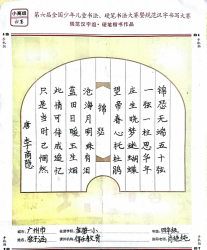 小画板
第六届全国少年儿童书法、硬笔书法大赛暨规范汉字书写大赛
规范汉字组·硬笔楷书作品
锦瑟
锦瑟无端五十弦
一弦一柱思华年
庄生晓梦迷蝴蝶
望帝春心托杜鹃
沧海月明珠有泪
蓝田日暖玉生烟
此情可待成追忆
只是当时已惘然
唐 李商隐
广州市
四年级